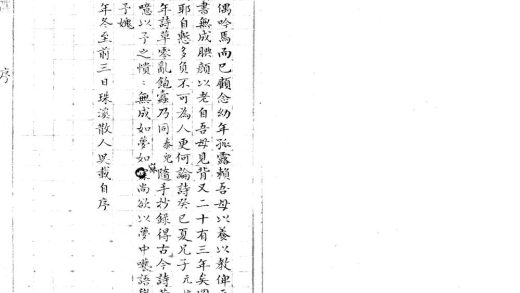 偶吟焉而已顧念幼年孤露賴吾母以養以教俾
書無成腆顏以老自吾母見背又二十有三年矣
耶自慙多負不可為人更何論詩癸巳夏兄子元
年詩草零亂飽蠹乃同泰兒隨手抄錄得古今詩
噫以予之憒憒無成如夢如尚欲以夢中囈語
予媿
年冬至前三日珠溪散人吳載自序
序